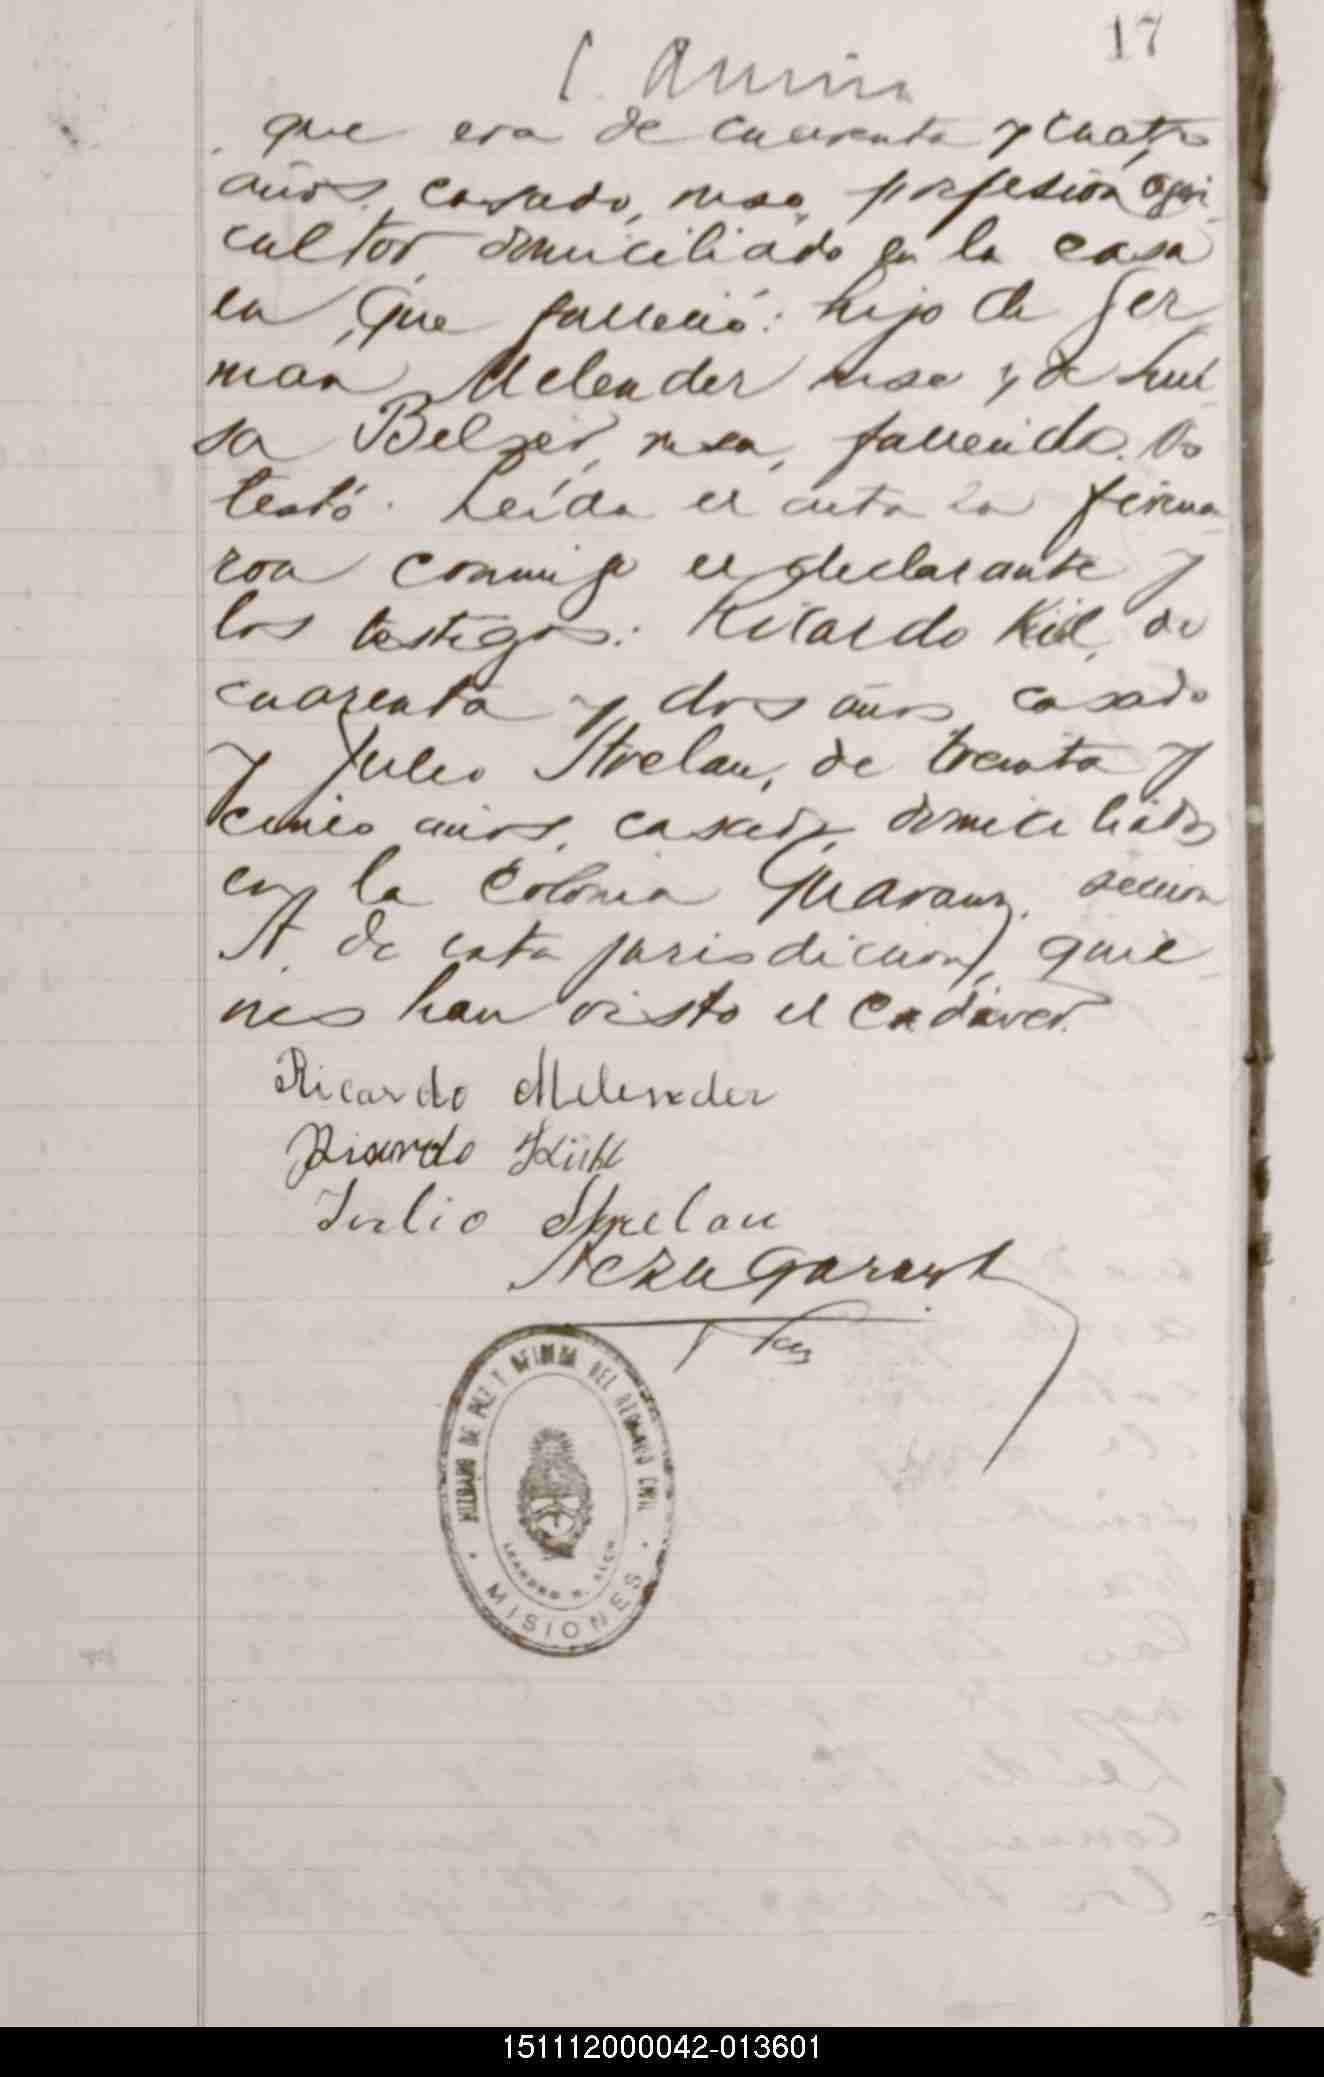 17
que era de cuarenta y cuatro
años, casado, ruso, profesión agri-
cultor, domiciliado en la casa
en que falleció: hijo de Ger-
man Melender ruso y de Lui-
sa Belzer, rusa, fallecidos. No
testó. Leída el acta la firma-
ron conmigo el declarante y
los testigos: Ricardo Kiil, de
cuarenta y dos años casado
y Julio Strelau, de treinta y
cinco años, casado, domiciliados
en la Colonia Guarany, seccion
A. de esta jurisdiccion, quie-
nes han visto el cadáver.
Ricardo Melender
Ricardo Kühl
Julio Strelau
JUZGADO DE PAZ Y OFICINA DEL REGISTRO CIVIL
LEANDRO N. ALEM
MISIONES
151112000042-013601